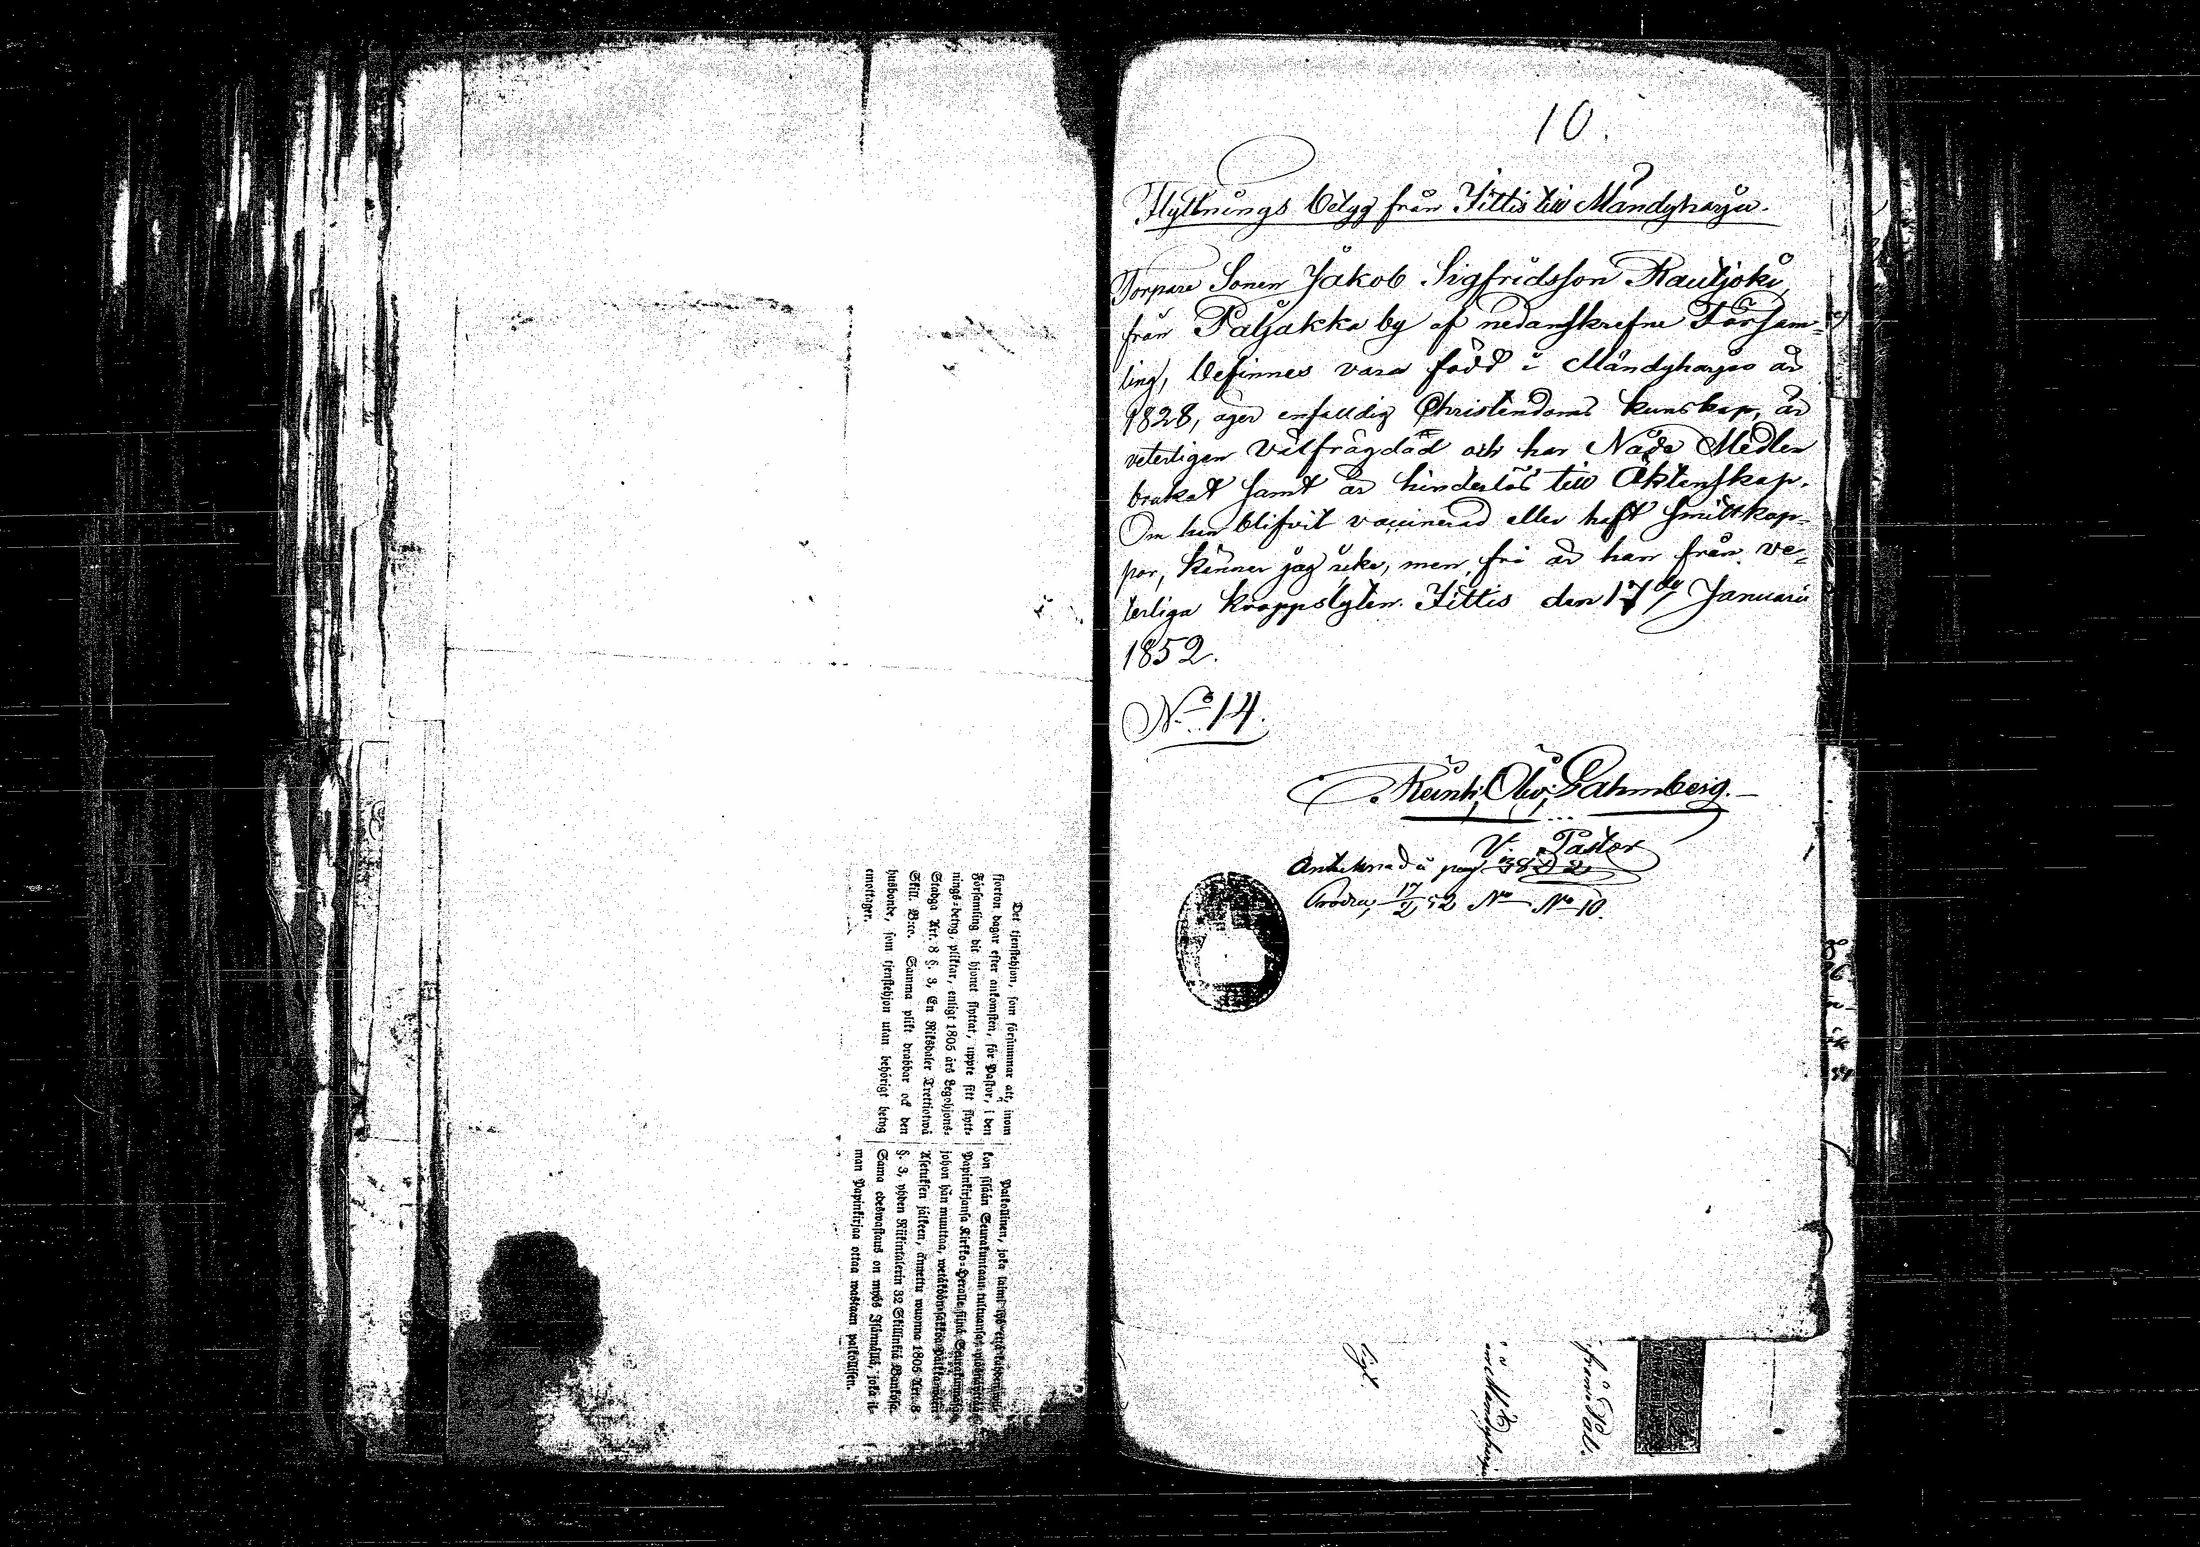 10.
Flyttnings betyg från Jittis till Mändyharju.
Torpare Sonen Jakob Sigfridsson Rautjoki,
från Paljakka by af nedanskrefne Försam-
ling, befinnes vara född i Mändyharju år
1828, äger enfalldig Christendoms kunskap, är
veterligen välfrägdad och har Nåde Medlen
brukat samt är hinderlös till Äktenskap.
Om han blifvit vaccinerad eller haft smittkop-
por, känner jag icke, men fri är han från ve-
terliga kroppslyten. Jittis den 17de Januarii
1852.
No 14.
Reinh. Olw. Gahmberg.
V. Pastor
Antecknad å pag 382
17/2 52 No No 10.
Det tjenstehjon, som försummar att, inom
fjorton dagar efter ankomsten, för Pastor, i den
Församling dit hjonet flyttat, uppte sitt flytt-
nings-betyg, pliktar, enligt 1805 års Legohjons-
Stadga Art. 8 §. 3, En Riksdaler Trettiotwå
Skill. B:co. Samma plikt drabbar ock den
husbonde, som tjenstehjon utan behörigt betyg
emottager.
Palkollinen, joka
kon sisään Seurakuntaan tultuansa
Papinkirjansa Kirkko-Herralle siinä Seurakunnassa,
johon hän muuttaa, wetäköön sakkoa Palkollisten
Asetuksen jälkeen, annettu wuonna 1805 Art. 8
§. 3, yhden Riikintalerin 32 Skillinkiä Bankosa.
Sama edeswastaus on myös Isännällä, joka il-
man Papinkirjaa ottaa wastaan palkollisen.
ligt.
Mändyharju
från Pal.